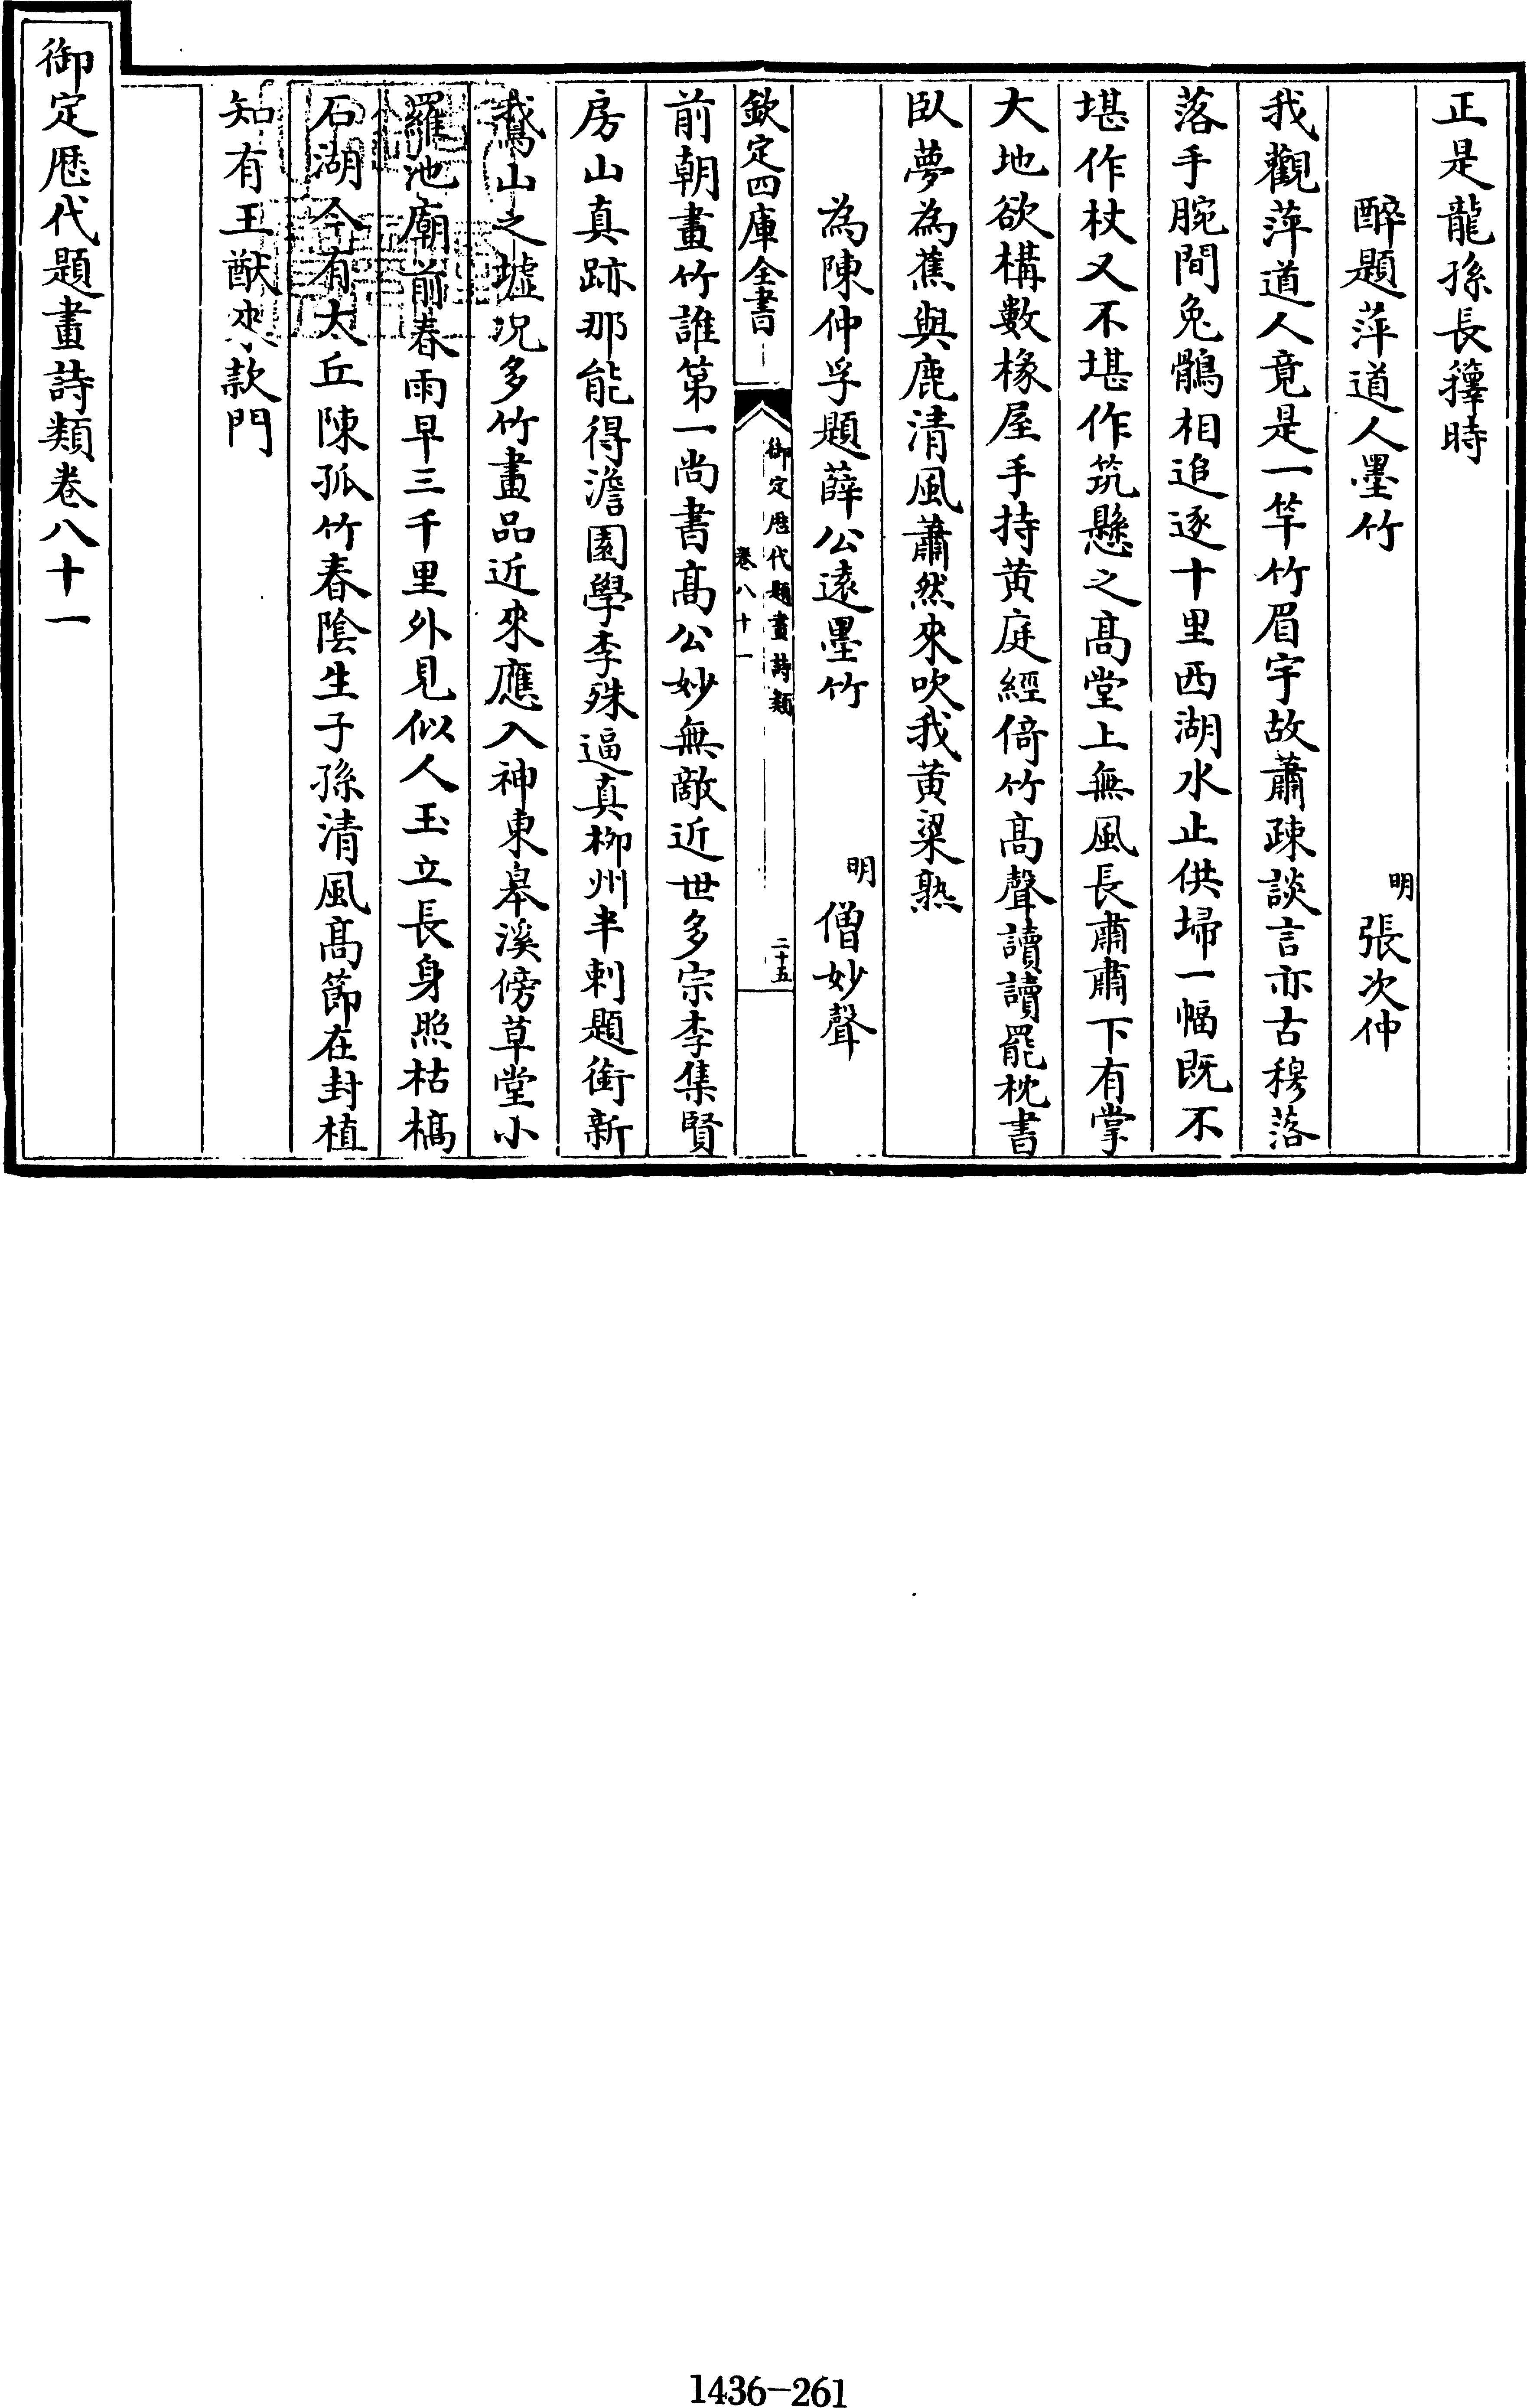 正是龍孫長籜時
醉題萍道人墨竹 明 張次仲
我觀萍道人竟是一竿竹眉宇故蕭疎談言亦古穆落
落手腕間兔鶻相追逐十里西湖水止供埽一幅既不
堪作杖又不堪作筑懸之髙堂上無風長肅肅下有掌
大地欲構數椽屋手持黄庭經倚竹髙聲讀讀罷枕書
臥夢為蕉與鹿清風蕭然來吹我黄粱熟
為陳仲孚題薛公逺墨竹 明 僧妙聲
欽定四庫全書
御定歴代題畫詩類
卷八十一
二十五
前朝畫竹誰第一尚書髙公妙無敵近世多宗李集賢
房山真跡那能得澹園學李殊逼真柳州半刺題銜新
鵞山之墟况多竹畫品近來應入神東臯溪傍草堂小
羅池廟前春雨早三千里外見似人玉立長身照枯槁
石湖今有太丘陳孤竹春陰生子孫清風髙節在封植
知有王猷來款門
御定歴代題畫詩類卷八十一
1436-261